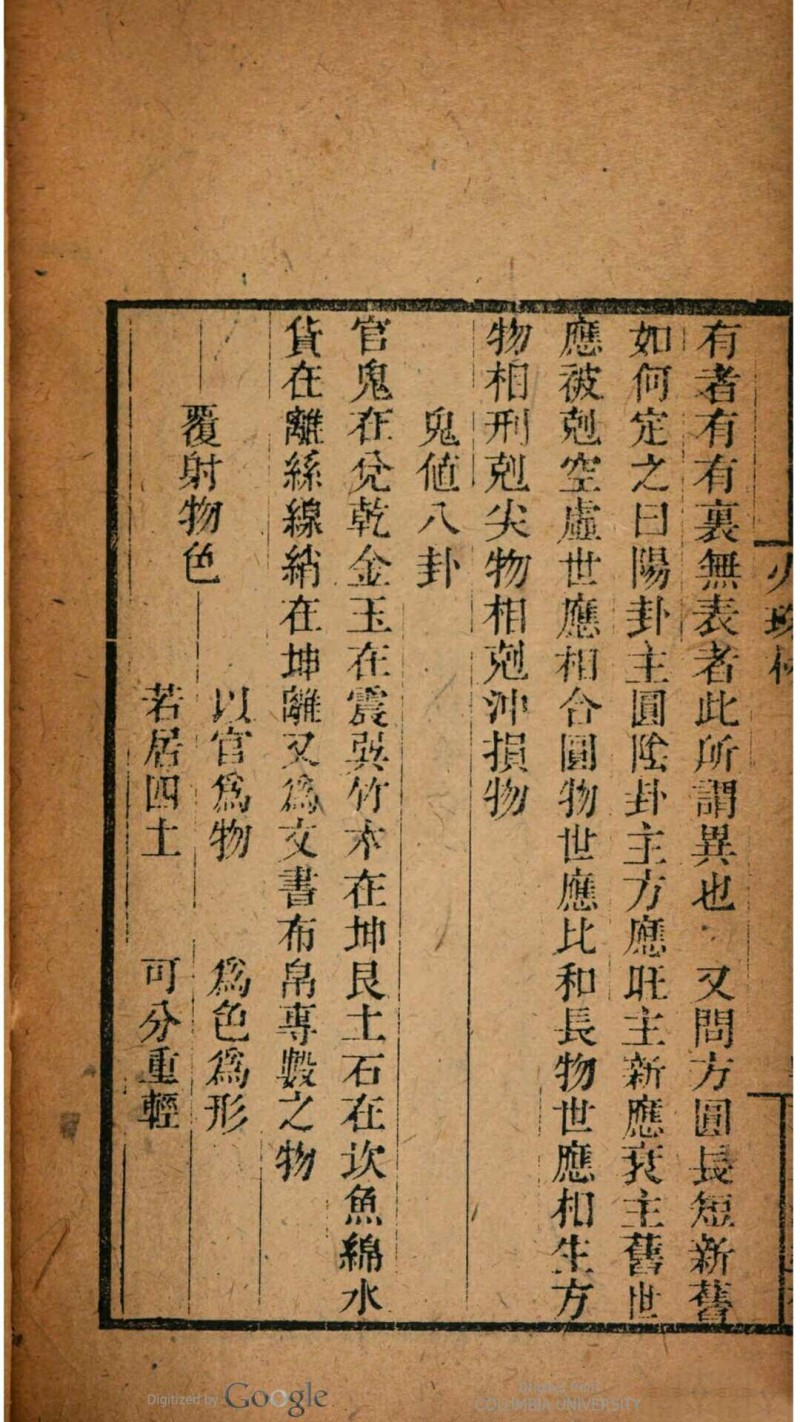 火珠林
有者有有裏無表者此所謂異也　又問方圓長短新舊
如何定之曰陽卦主圓陰卦主方應旺主新應衰主舊世
應被剋空虛世應相合圓物世應比和長物世應相生方
物相刑剋尖物相剋沖損物
鬼値八卦
官鬼在兌乾金玉在震巽竹木在坤艮土石在坎魚綿水
貨在離絲線綃在坤離又為文書布帛專㲉之物
覆射物色
以官爲物　爲色爲形
若居四土　可分重輕
Digitized by Google
Original from
COLUMBIA UNIVERSITY